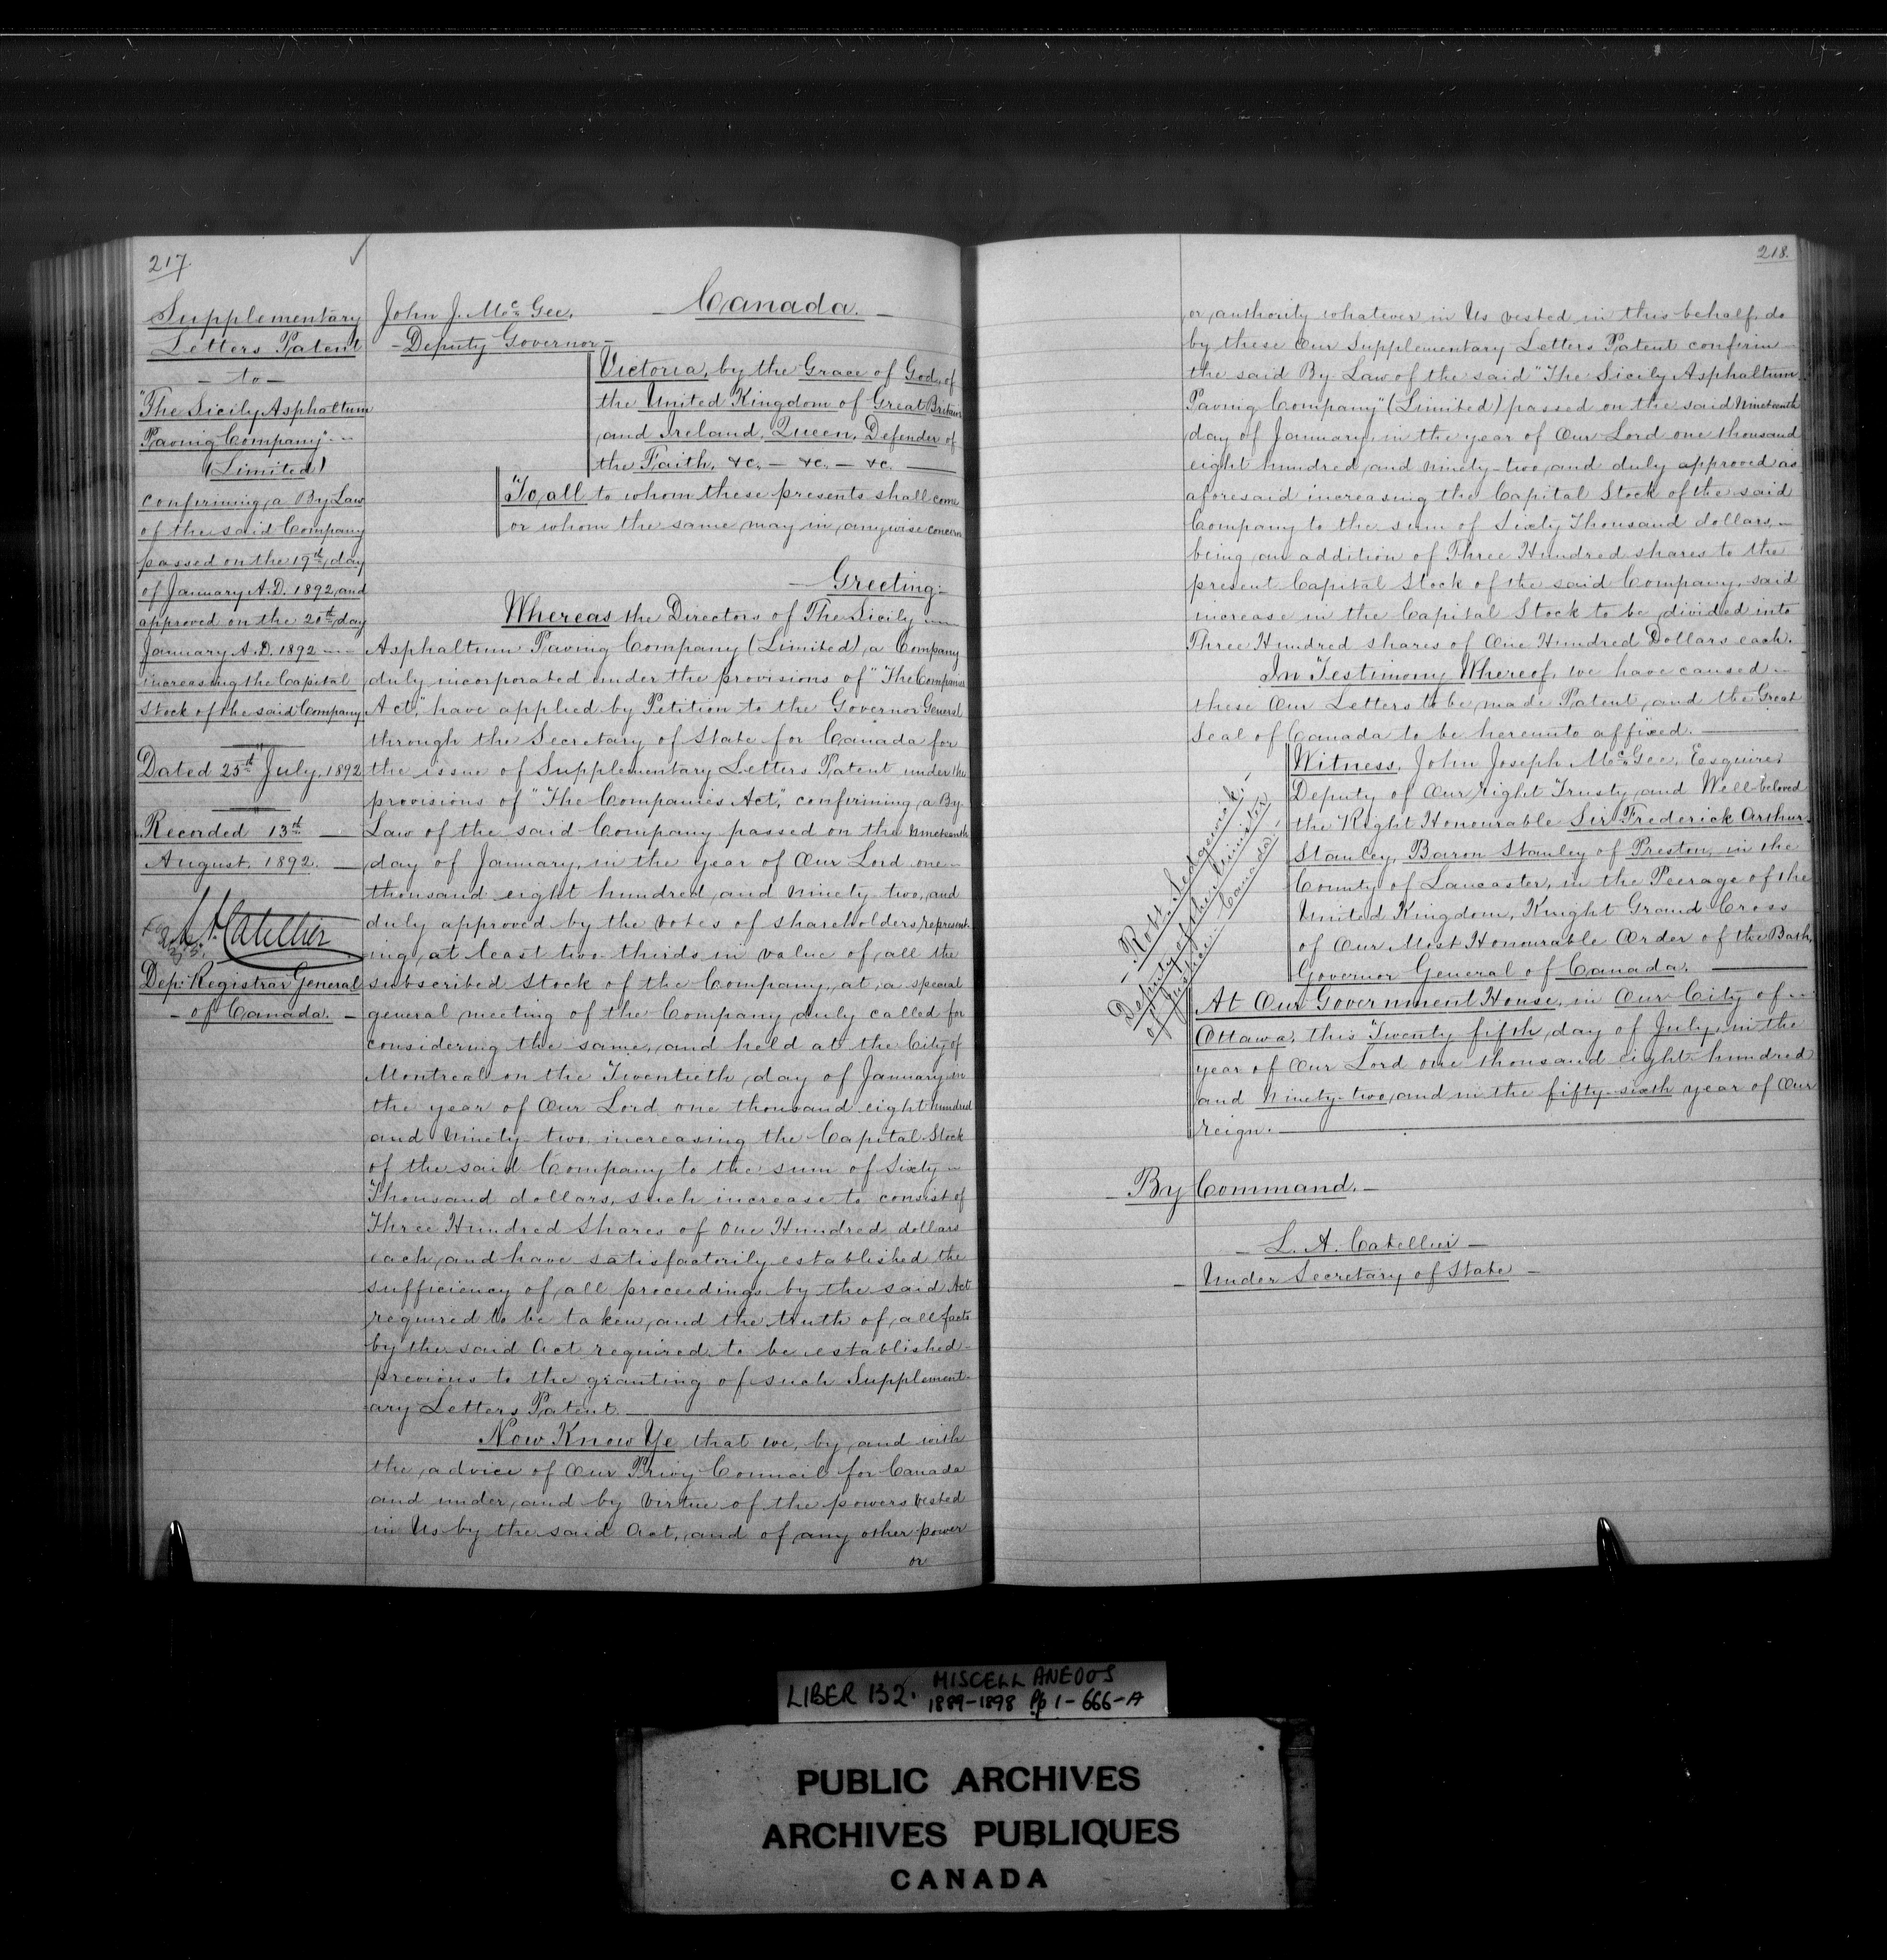 217.
Supplementary
Letters Patent
- to -
"The Sicily Asphaltum
Paving Company"
(Limited)
confirming a By Law
of the said Company
passed on the 19th day
of January A.D. 1892 and
approved on the 20th day
January A.D. 1892
increasing the Capital
Stock of the said Company
Dated 25th July, 1892
Recorded 13th
August, 1892.
L. A. Catellier
Dep: Registrar General
- of Canada. -
John J. McGee,
- Deputy Governor -
- Canada. -
Victoria, by the Grace of God, of
the United Kingdom of Great Britain
and Ireland, Queen, Defender of
the Faith, &c. - &c. - &c.
To all to whom these presents shall come
or whom the same may in anywise concern
- Greeting:-
Whereas the Directors of The Sicily
Asphaltum Paving Company (Limited), a Company
duly incorporated under the provisions of "The Companies
Act," have applied by Petition to the Governor General
through the Secretary of State for Canada for
the issue of Supplementary Letters Patent under the
provisions of "The Companies Act," confirming a By
Law of the said Company passed on the Nineteenth
day of January, in the year of Our Lord one
thousand eight hundred and ninety two, and
duly approved by the votes of shareholders represent-
ing at least two thirds in value of all the
subscribed Stock of the Company, at a special
general meeting of the Company duly called for
considering the same, and held at the City of
Montreal on the Twentieth day of January in
the year of Our Lord one thousand eight hundred
and Ninety two increasing the Capital Stock
of the said Company to the sum of Sixty
Thousand dollars, such increase to consist of
Three Hundred Shares of One Hundred dollars
each, and have satisfactorily established the
sufficiency of all proceedings by the said Act
required to be taken, and the truth of all facts
by the said Act required to be established
previous to the granting of such Supplement-
ary Letters Patent.
Now Know Ye that we, by and with
the advice of Our Privy Council for Canada
and under and by virtue of the powers vested
in Us by the said Act, and of any other power
or
218.
or authority whatever in Us vested in this behalf, do
by these Our Supplementary Letters Patent confirm
the said By Law of the said "The Sicily Asphaltum
Paving Company" (Limited) passed on the said Nineteenth
day of January, in the year of Our Lord one thousand
eight hundred and ninety-two, and duly approved as
aforesaid increasing the Capital Stock of the said
Company to the sum of Sixty Thousand dollars,
being an addition of Three Hundred shares to the
present Capital Stock of the said Company, said
increase in the Capital Stock to be divided into
Three Hundred shares of One Hundred Dollars each.
In Testimony Whereof, we have caused
these Our Letters to be made Patent, and the Great
Seal of Canada to be hereunto affixed.
Witness, John Joseph McGee, Esquire,
Deputy of Our Right Trusty and Well-beloved
the Right Honourable Sir Frederick Arthur
Stanley, Baron Stanley of Preston, in the
County of Lancaster, in the Peerage of the
United Kingdom, Knight Grand Cross
of Our Most Honourable Order of the Bath,
Governor General of Canada.
- Robt. Sedgewick, -
Deputy of the Minister
of Justice. Canada.
At Our Government House, in Our City of
Ottawa, this Twenty fifth day of July, in the
year of Our Lord one thousand eight hundred
and Ninety-two, and in the fifty-sixth year of Our
reign.
- By Command. -
- L. A. Catellier -
- Under Secretary of State -
LIBER 132. MISCELLANEOUS
1889-1898 Pp 1-666-A
PUBLIC ARCHIVES
ARCHIVES PUBLIQUES
CANADA